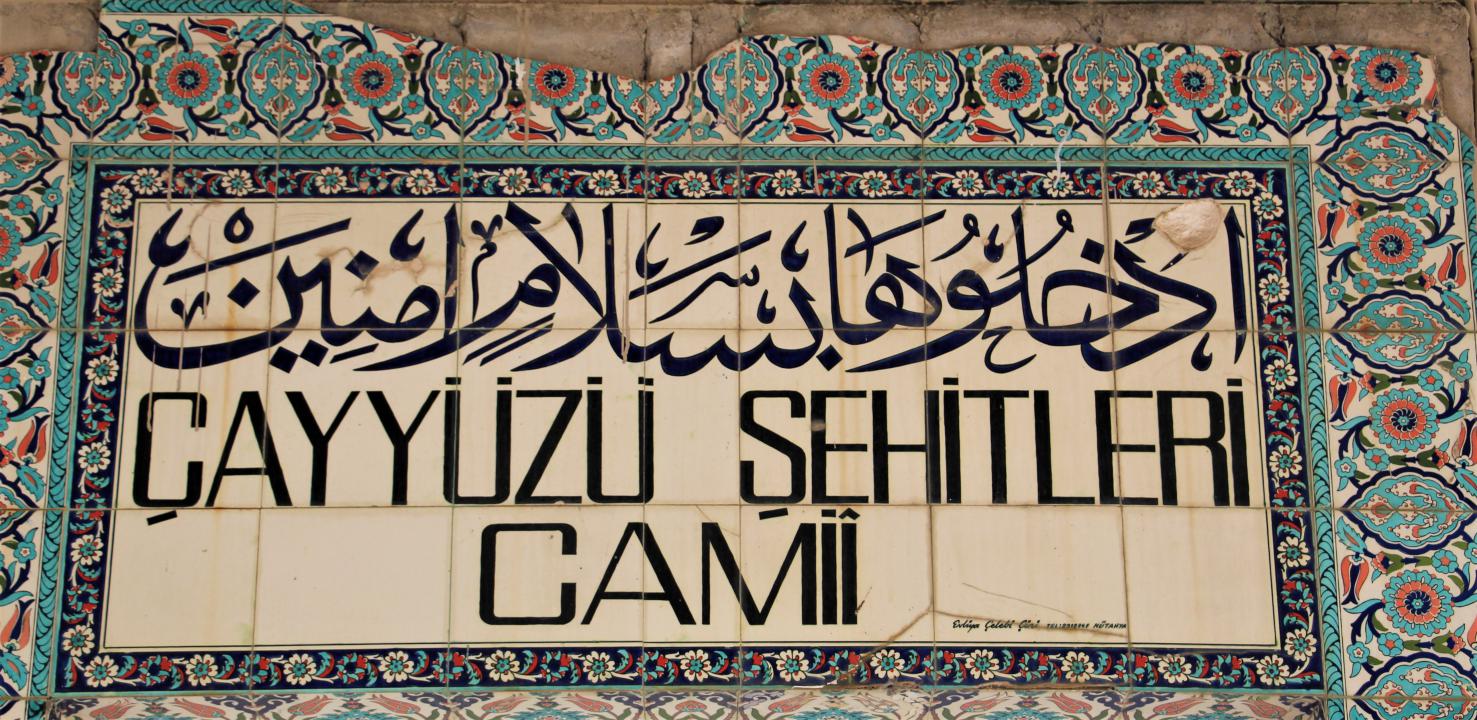 ادخلوها بسلام امنين
ÇAYYÜZÜ ŞEHİTLERİ
CAMİİ
Evliya Çelebi Çini KÜTAHYA